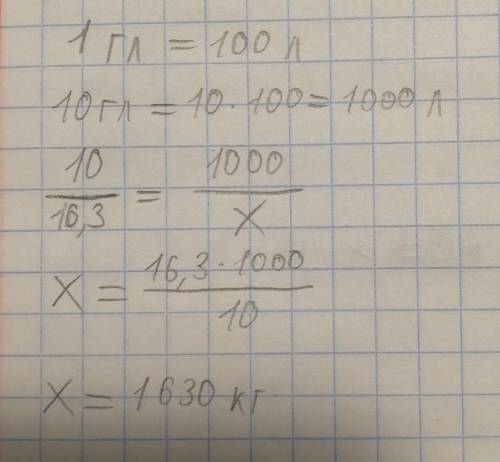 1 гл = 100 л
10 гл = 10 · 100 = 1000 л
10/16,3 = 1000/X
X = 16,3 · 1000/10
X = 1630 кг